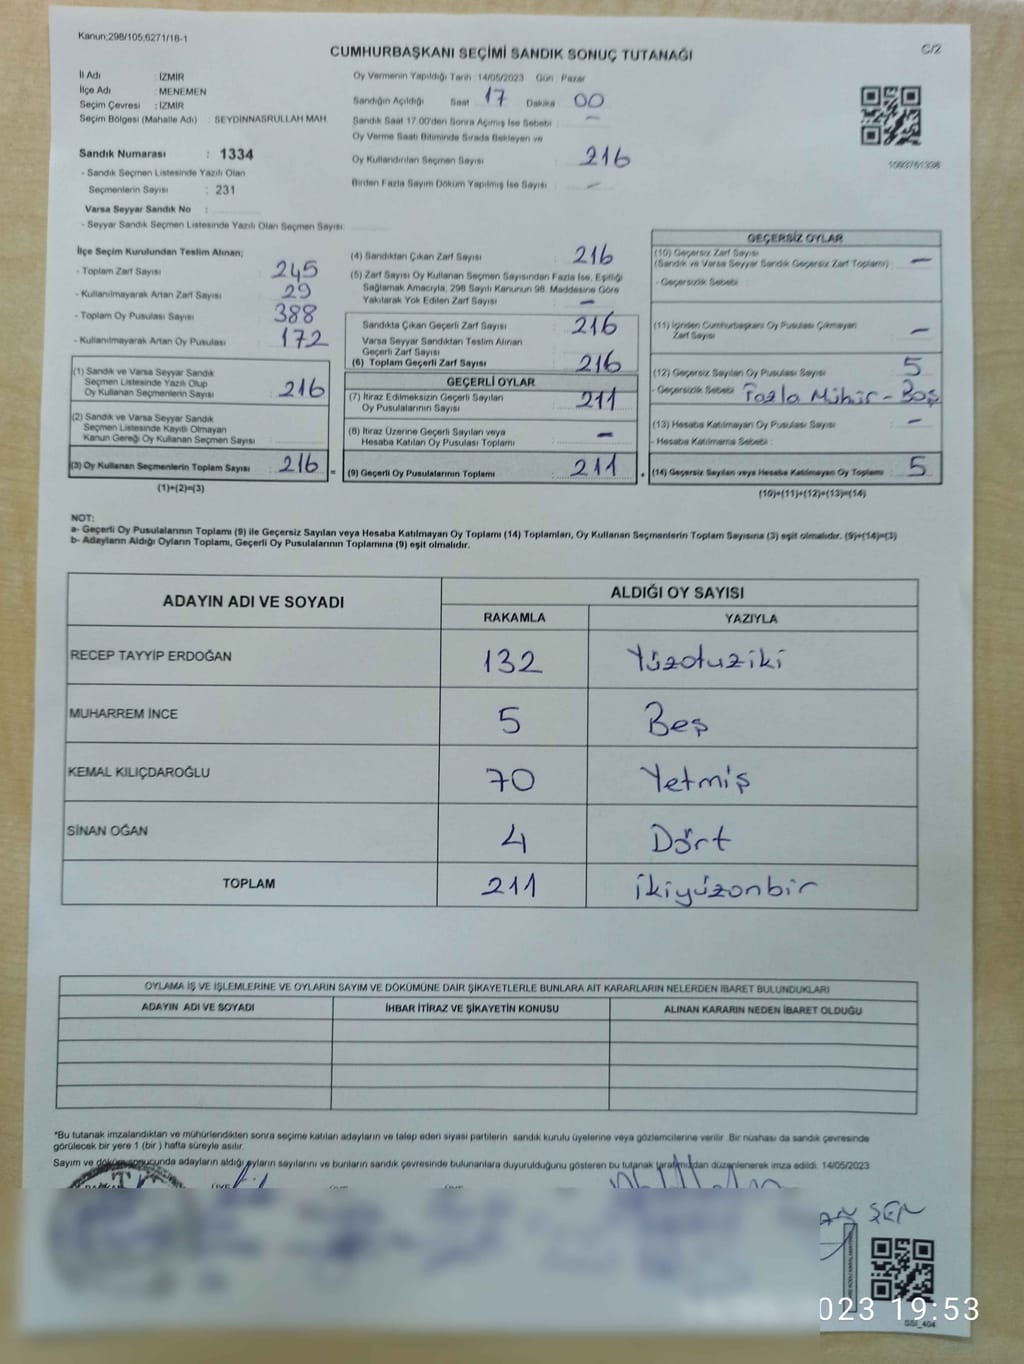 Kanun;298/105;6271/18-1
C/2
CUMHURBAŞKANI SEÇİMİ SANDIK SONUÇ TUTANAĞI
İl Adı : İZMİR
İlçe Adı : MENEMEN
Seçim Çevresi : İZMİR
Seçim Bölgesi (Mahalle Adı) : SEYDİNNASRULLAH MAH.
Sandık Numarası : 1334
- Sandık Seçmen Listesinde Yazılı Olan
Seçmenlerin Sayısı : 231
Varsa Seyyar Sandık No :
- Seyyar Sandık Seçmen Listesinde Yazılı Olan Seçmen Sayısı:
Oy Vermenin Yapıldığı Tarih : 14/05/2023 Gün : Pazar
Sandığın Açıldığı Saat 17 Dakika 00
Sandık Saat 17:00'den Sonra Açımış İse Sebebi : -
Oy Verme Saati Bitiminde Sırada Bekleyen ve
Oy Kullandırılan Seçmen Sayısı 216
Birden Fazla Sayım Döküm Yapılmış İse Sayısı : -
İlçe Seçim Kurulundan Teslim Alınan;
- Toplam Zarf Sayısı : 245
- Kullanılmayarak Artan Zarf Sayısı : 29
- Toplam Oy Pusulası Sayısı : 388
- Kullanılmayarak Artan Oy Pusulası : 172
(1) Sandık ve Varsa Seyyar Sandık
Seçmen Listesinde Yazılı Olup
Oy Kullanan Seçmenlerin Sayısı : 216
(2) Sandık ve Varsa Seyyar Sandık
Seçmen Listesinde Kayıtlı Olmayan
Kanun Gereği Oy Kullanan Seçmen Sayısı :
(3) Oy Kullanan Seçmenlerin Toplam Sayısı : 216
(1)+(2)=(3)
=
(4) Sandıktan Çıkan Zarf Sayısı : 216
(5) Zarf Sayısı Oy Kullanan Seçmen Sayısından Fazla İse, Eşitliği
Sağlamak Amacıyla, 298 Sayılı Kanunun 98. Maddesine Göre
Yakılarak Yok Edilen Zarf Sayısı : -
Sandıkta Çıkan Geçerli Zarf Sayısı : 216
Varsa Seyyar Sandıktan Teslim Alınan
Geçerli Zarf Sayısı
(6) Toplam Geçerli Zarf Sayısı : 216
GEÇERLİ OYLAR
(7) İtiraz Edilmeksizin Geçerli Sayılan
Oy Pusulalarının Sayısı : 211
(8) İtiraz Üzerine Geçerli Sayılan veya
Hesaba Katılan Oy Pusulası Toplamı : -
(9) Geçerli Oy Pusulalarının Toplamı : 211
GEÇERSİZ OYLAR
(10) Geçersiz Zarf Sayısı
(Sandık ve Varsa Seyyar Sandık Geçersiz Zarf Toplamı) : -
- Geçersizlik Sebebi :
(11) İçinden Cumhurbaşkanı Oy Pusulası Çıkmayan
Zarf Sayısı : -
(12) Geçersiz Sayılan Oy Pusulası Sayısı : 5
- Geçersizlik Sebebi Fazla Mühür - Boş
(13) Hesaba Katılmayan Oy Pusulası Sayısı : -
- Hesaba Katılmama Sebebi :
(14) Geçersiz Sayılan veya Hesaba Katılmayan Oy Toplamı : 5
(10)+(11)+(12)+(13)=(14)
NOT:
a- Geçerli Oy Pusulalarının Toplamı (9) ile Geçersiz Sayılan veya Hesaba Katılmayan Oy Toplamı (14) Toplamları, Oy Kullanan Seçmenlerin Toplam Sayısına (3) eşit olmalıdır. (9)+(14)=(3)
b- Adayların Aldığı Oyların Toplamı, Geçerli Oy Pusulalarının Toplamına (9) eşit olmalıdır.
ADAYIN ADI VE SOYADI
ALDIĞI OY SAYISI
RAKAMLA YAZIYLA
RECEP TAYYİP ERDOĞAN 132 Yüzotuziki
MUHARREM İNCE 5 Beş
KEMAL KILIÇDAROĞLU 70 Yetmiş
SİNAN OĞAN 4 Dört
TOPLAM 211 ikiyüzonbir
OYLAMA İŞ VE İŞLEMLERİNE VE OYLARIN SAYIM VE DÖKÜMÜNE DAİR ŞİKAYETLERLE BUNLARA AİT KARARLARIN NELERDEN İBARET BULUNDUKLARI
ADAYIN ADI VE SOYADI İHBAR İTİRAZ VE ŞİKAYETİN KONUSU ALINAN KARARIN NEDEN İBARET OLDUĞU
*Bu tutanak imzalandıktan ve mühürlendikten sonra seçime katılan adayların ve talep eden siyasi partilerin sandık kurulu üyelerine veya gözlemcilerine verilir. Bir nüshası da sandık çevresinde
görülecek bir yere 1 (bir) hafta süreyle asılır.
Sayım ve döküm sonucunda adayların aldığı oyların sayılarını ve bunların sandık çevresinde bulunanlara duyurulduğunu gösteren bu tutanak tarafımızdan düzenlenerek imza edildi. 14/05/2023
ŞEN
023 19:53
GSI_404